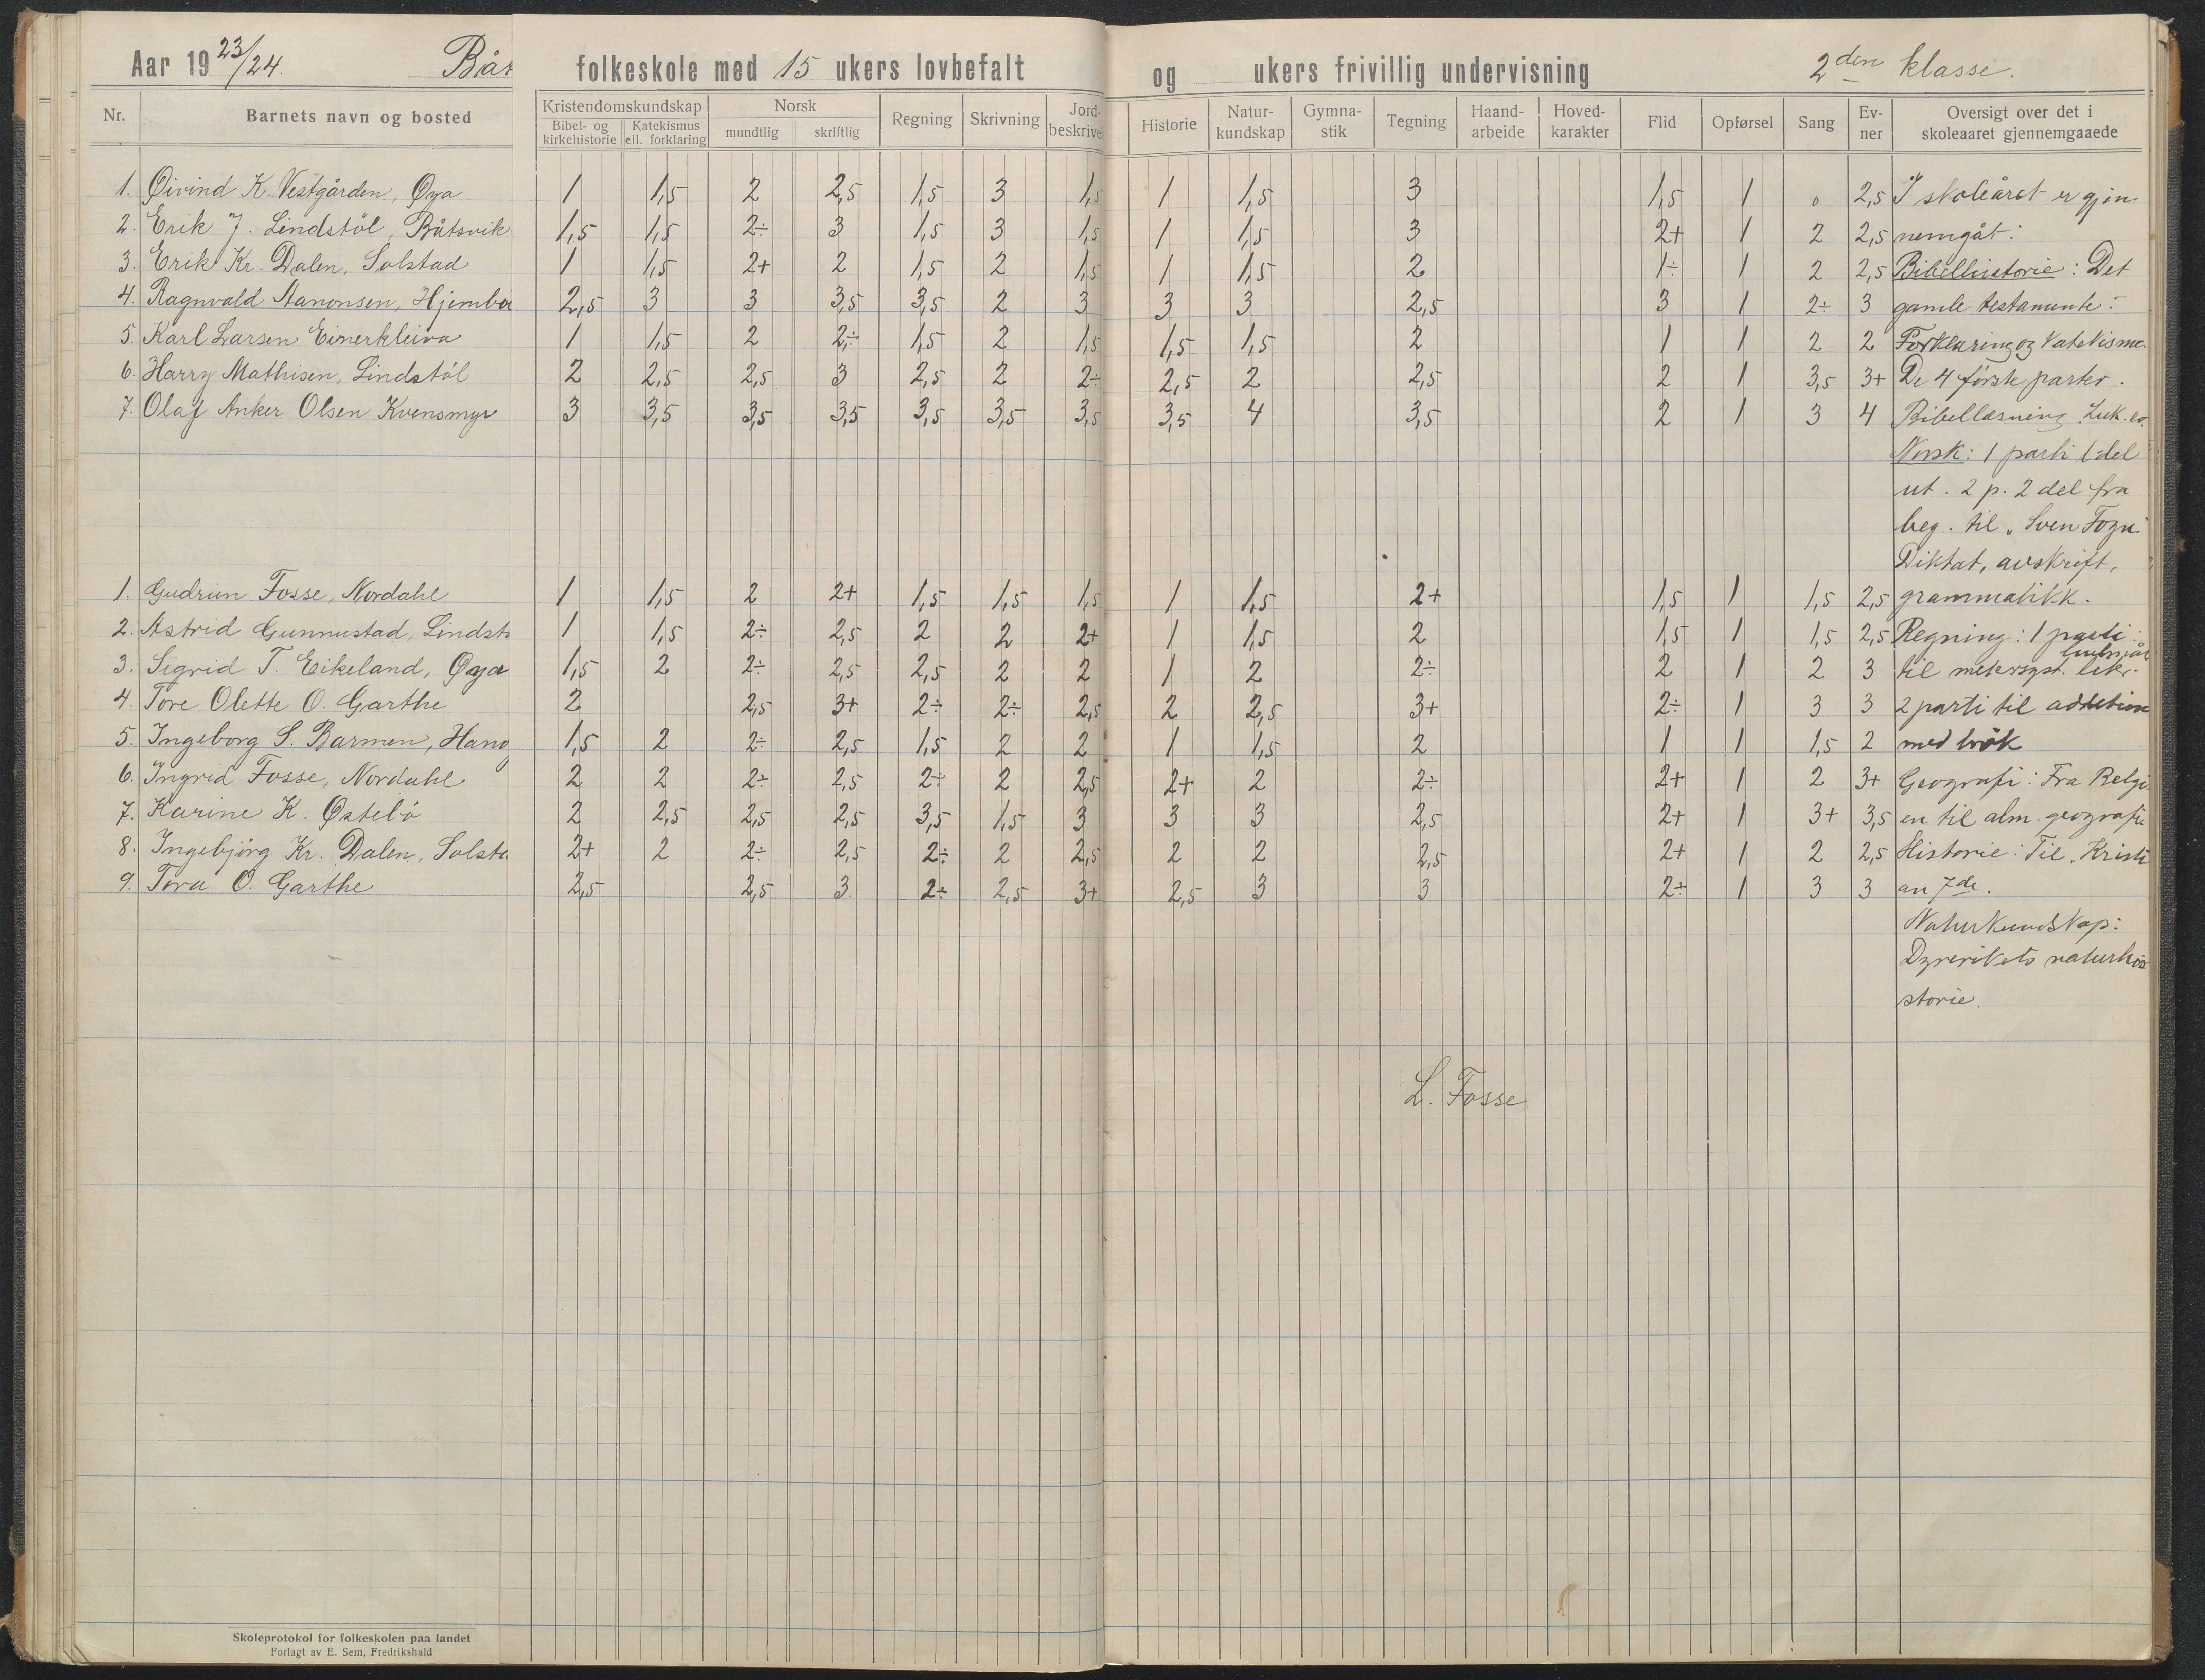 Aar 19 23/24. Bår folkeskole med 15 ukers lovbefalt og ukers frivillig undervisning 2den klasse.
Nr. Barnets navn og bosted Kristendomskundskap Bibel- og kirkehistorie Katekismus ell. forklaring Norsk mundtlig skriftlig Regning Skrivning Jord- beskrivel Historie Natur- kundskap Gymna- stik Tegning Haand- arbeide Hoved- karakter Flid Opførsel Sang Ev- ner Oversigt over det i skoleaaret gjennemgaaede
1. Øivind K. Vestgården, Øya 1 1,5 2 2,5 1,5 3 1,5 1 1,5 3 1,5 1 0 2,5 I skoleåret er gjen-
2. Erik J. Lindstöl, Båtsvik 1,5 1,5 2÷ 3 1,5 3 1,5 1 1,5 3 2+ 1 2 2,5 nemgåt:
3. Erik Kr. Dalen, Solstad 1 1,5 2+ 2 1,5 2 1,5 1 1,5 2 1÷ 1 2 2,5 Bibelhistorie: Det
4. Ragnvald Aanonsen, Hjembu 2,5 3 3 3,5 3,5 2 3 3 3 2,5 3 1 2÷ 3 gamle testamente:
5. Karl Larsen Einerkleiva 1 1,5 2 2÷ 1,5 2 1,5 1,5 1,5 2 1 1 2 2 Forklaring og Katekisme.
6. Harry Mathisen, Lindstöl 2 2,5 2,5 3 2,5 2 2÷ 2,5 2 2,5 2 1 3,5 3+ De 4 förste parter.
7. Olaf Anker Olsen Kvensmyr 3 3,5 3,5 3,5 3,5 3,5 3,5 3,5 4 3,5 2 1 3 4 Bibellæsning Luk. ev.
Norsk: 1 parti 1 del
ut. 2 p. 2 del fra
beg. til "Sven Foyn"
Diktat, avskrift,
1. Gudrun Fosse, Nordahl 1 1,5 2 2+ 1,5 1,5 1,5 1 1,5 2+ 1,5 1 1,5 2,5 grammatikk.
2. Astrid Gunnustad, Lindst 1 1,5 2÷ 2,5 2 2 2+ 1 1,5 2 1,5 1 1,5 2,5 Regning: 1 parti:
3. Sigrid T. Eikeland, Øya 1,5 2 2÷ 2,5 2,5 2 2 1 2 2÷ 2 1 2 3 til metersyst.
4. Tore Olette O. Garthe 2 2,5 3+ 2÷ 2÷ 2,5 2 2,5 3+ 2÷ 1 3 3 2 parti til addition
5. Ingeborg S. Barmen, Hang 1,5 2 2÷ 2,5 1,5 2 2 1 1,5 2 1 1 1,5 2 med brök
6. Ingrid Fosse, Nordahl 2 2 2÷ 2,5 2÷ 2 2,5 2+ 2 2÷ 2+ 1 2 3+ Geografi: Fra Belgi
7. Karine K. Østebö 2 2,5 2,5 2,5 3,5 1,5 3 3 3 2,5 2+ 1 3+ 3,5 en til alm. geografi
8. Ingebjörg Kr. Dalen, Solsta 2+ 2 2÷ 2,5 2÷ 2 2,5 2 2 2,5 2+ 1 2 2,5 Historie: Til Kristi
9. Tora O. Garthe 2,5 2,5 3 2÷ 2,5 3+ 2,5 3 3 2÷ 1 3 3 an 7de.
Naturkundskap:
Dyrerikets naturhi
storie.
L. Fosse
Skoleprotokol for folkeskolen paa landet
Forlagt av E. Sem, Fredrikshald